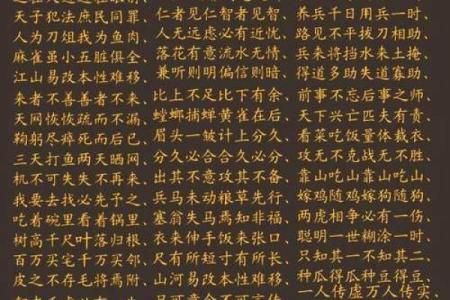 天子犯法庶民同罪、
人为刀俎我为鱼肉、
麻雀虽小五脏俱全、
江山易改本性难移、
来者不善善者不来、
天网恢恢疏而不漏、
鞠躬尽瘁死而后已、
三天打鱼两天晒网、
机不可失失不再来、
我要去找必先予之、
吃着碗里看着锅里、
树高千尺叶落归根、
百万买宅千万买邻、
皮之不存毛将焉附、
仁者见仁智者见智、
人无远虑必有近忧、
落花有意流水无情、
兼听则明偏信则暗、
比上不足比下有余、
螳螂捕蝉黄雀在后、
眉头一皱计上分久、
分久必合合久必分、
出其不意攻其不备、
兵马未动粮草先行、
塞翁失马焉知非福、
衣来伸手饭来张口、
尺有所短寸有所长、
山河易改本性难移、
养兵千日用兵一时、
路见不平拔刀相助、
兵来将挡水来土掩、
得道多助失道寡助、
前事不忘后事之师、
天下兴亡匹夫有责、
看菜吃饭量体裁衣、
攻无不克战无不胜、
靠山吃山靠山吃山、
嫁鸡随鸡嫁狗随狗、
两虎相争必有一伤、
聪明一世糊涂一时、
只知其一不知其二、
种瓜得瓜种豆得豆、
一人传虚万人传实、